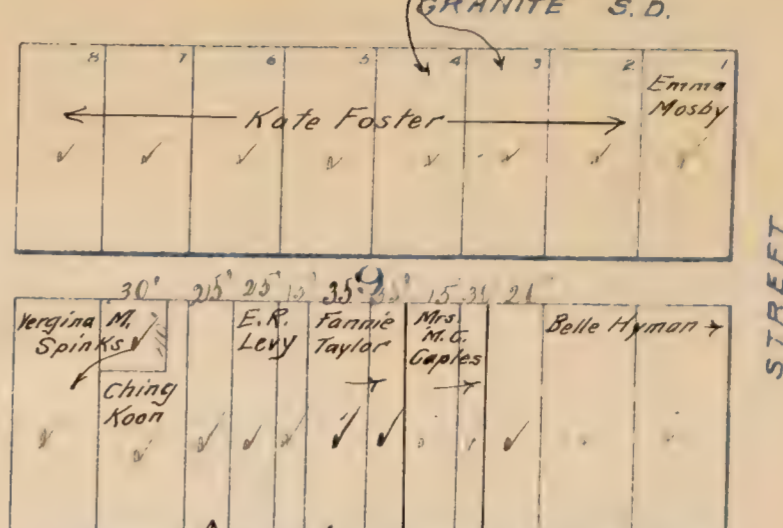 GRANITE S.D.
8 7 6 5 4 3 2 1
Emma
Mosby
Kate Foster
STREET
9
30' 25' 25' 15' 35' 15 31 21
Vergina
Spinks
M.
Ching
Koon
E.R.
Levy
Fannie
Taylor
Mrs.
M.C.
Caples
Belle Hyman